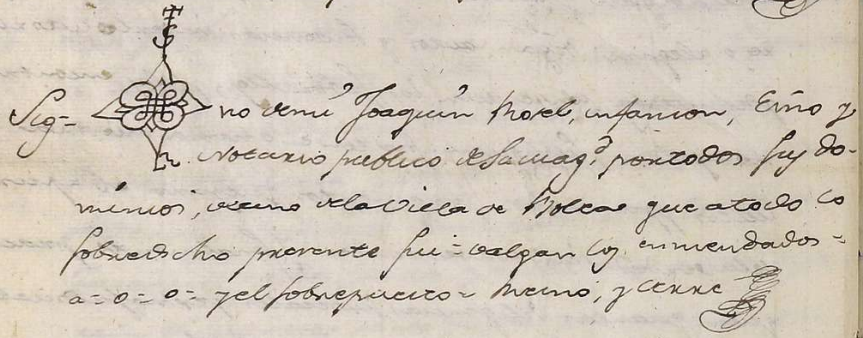 Sig=no de mi Joaquin Morel, infanzon, Essno y
Notario publico de Su Magd. por todos sus do-
minios, vecino de la Villa de Bolea que a todo lo
sobredicho presente fui = valgan los enmendados =
a = o = o = y el sobrepuesto = y cerre